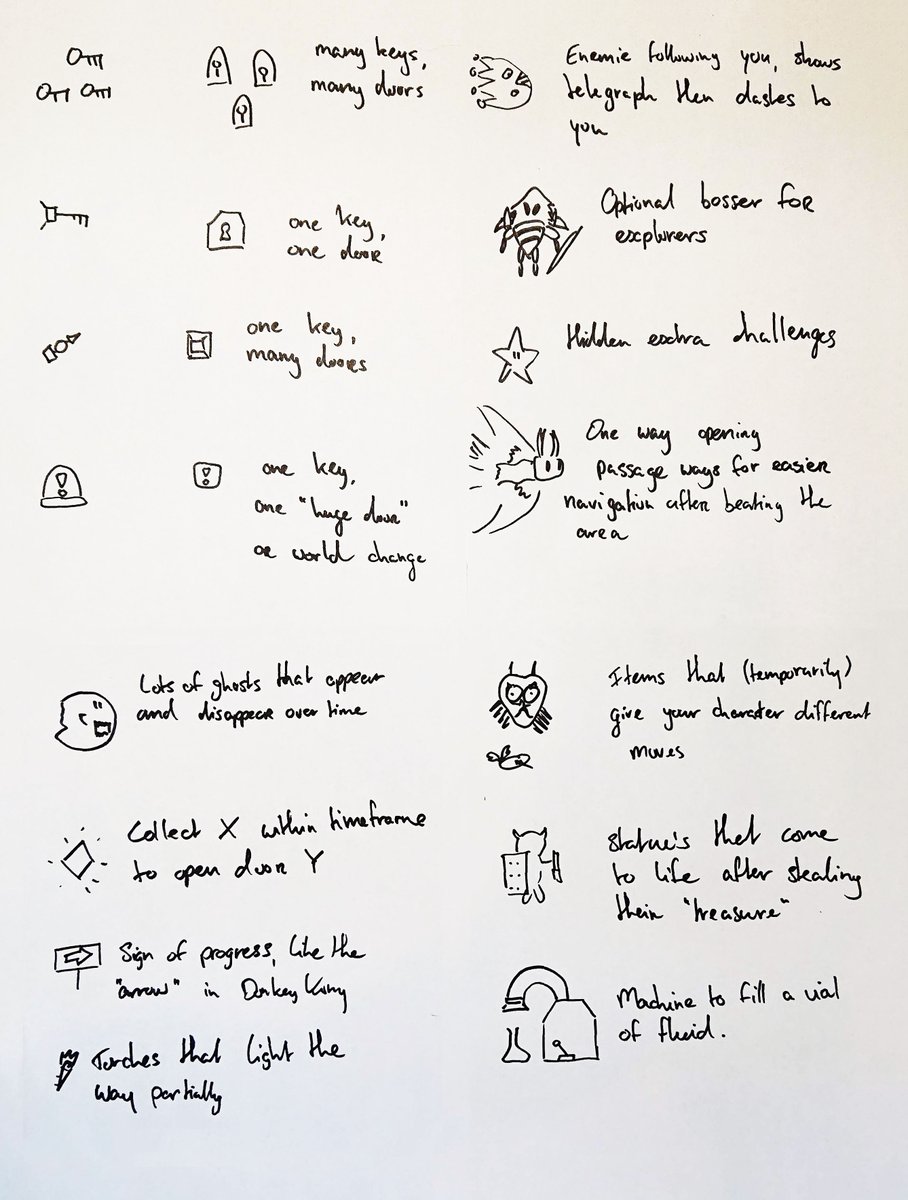 many keys,
many doors
one key,
one door
one key,
many doors
one key,
one "huge door"
or world change
Lots of ghosts that appear
and disappear over time
Collect X within timeframe
to open door Y
Sign of progress, like the
"arrow" in Donkey Kong
Torches that light the
way partially
Enemie following you, shows
telegraph then dashes to
you
Optional bosser for
explorers
Hidden extra challenges
One way opening
passage ways for easier
navigation after beating the
area
Items that (temporarily)
give your character different
moves
Statue's that come
to life after stealing
their "treasure"
Machine to fill a vial
of fluid.